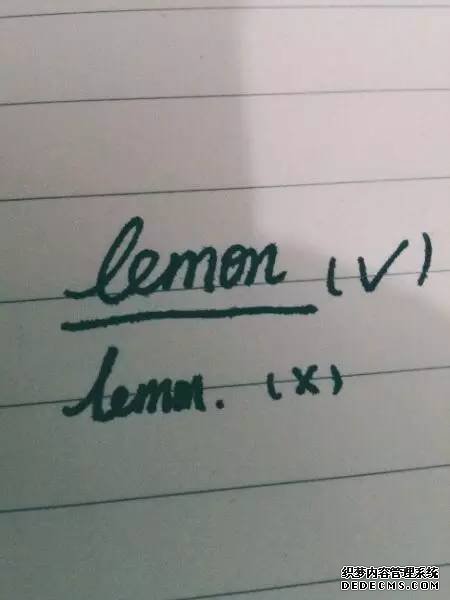 lemon (√)
lemon. (×)
织梦内容管理系统
DEDECMS.COM